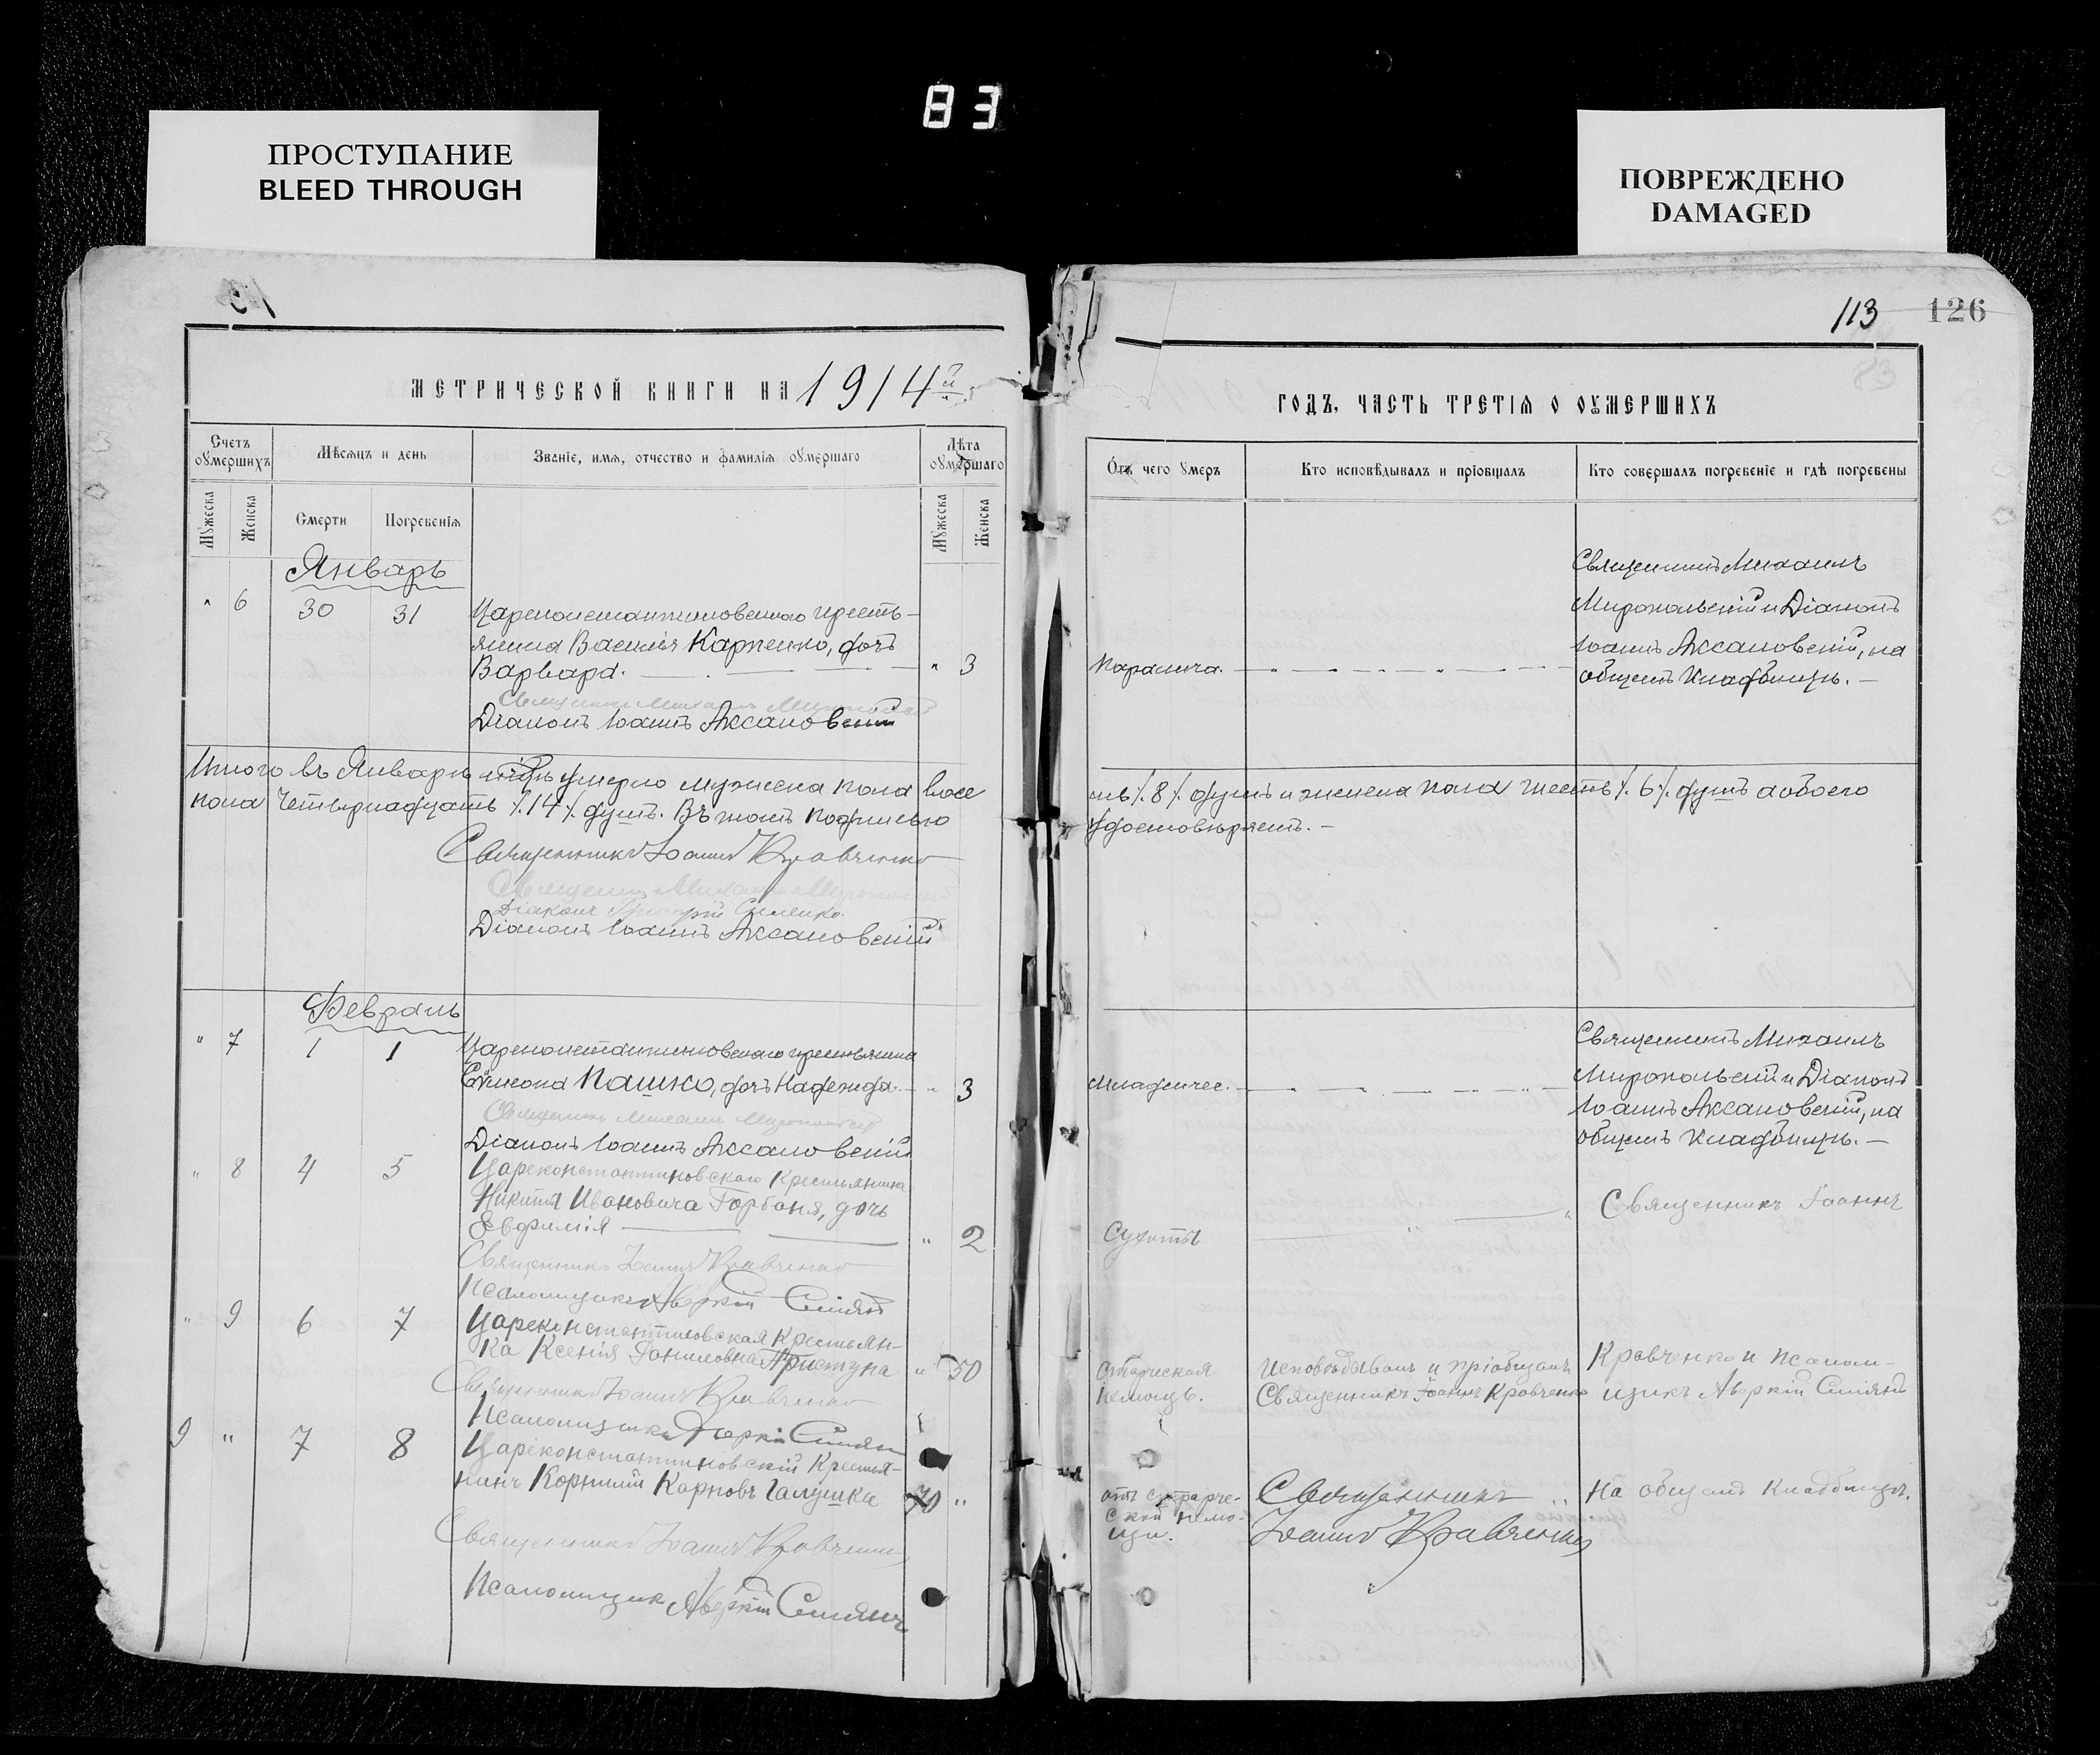 83
ПРОСТУПАНИЕ
BLEED THROUGH
ПОВРЕЖДЕНО
DAMAGED
МЕТРИЧЕСКОЙ КНИГИ НА 1914й
Счетъ оумершихъ
Мѣсяцъ и день
Званіе, имя, отчество и фамилія оумершаго
Лѣта оумершаго
Мужеска
Женска
Смерти
Погребенія
Мужеска
Женска
Январь
" 6 30 31 Цареконстантиновскаго кресть-
янина Василія Карпенко, дочь
Варвара. " 3
Священникъ Михаилъ
Діаконъ Іоаннъ Аксановскій
Итого въ Январѣ мѣсяцѣ умерло мужеска пола восе
пола четырнадцать /.14/. душъ. Въ томъ подписью
Священникъ Іоаннъ Кравченко
Священникъ Михаилъ
Діаконъ
Діаконъ Іоаннъ Аксановскій
Февраль
" 7 1 1 Цареконстантиновскаго крестьянина
Симеона Пашко, дочь Надежда. " 3
Священникъ Михаилъ
Діаконъ Іоаннъ Аксановскій
" 8 4 5 Цареконстантиновскаго Крестьянина
Никиты Ивановича Горбаня, дочь
Евфимія " 2
Священникъ Іоаннъ Кравченко
Псаломщикъ Аверкій
" 9 6 7 Цареконстантиновская Крестьян-
ка Ксенія Даниловна Приступа " 50
Священникъ Іоаннъ Кравченко
Псаломщикъ Аверкій
9 " 7 8 Цареконстантиновскій Крестья-
нинъ Корнилій Карповъ Галушка 70 "
Священникъ Іоаннъ Кравченко
Псаломщикъ Аверкій
113 126
ГОДЪ, ЧАСТЬ ТРЕТІЯ О ОУМЕРШИХЪ
Отъ чего умеръ
Кто исповѣдывалъ и пріобщалъ
Кто совершалъ погребеніе и гдѣ погребены
Священникъ Михаилъ
Миропольскій и Діаконъ
Іоаннъ Аксановскій, на
Паралича. общемъ кладбищѣ.
мь /.8/. душъ и женска пола шесть /.6/. душъ а обоего
удостовѣряемъ.
Священникъ Михаилъ
Младенчес. Миропольскій и Діаконъ
Іоаннъ Аксановскій, на
общемъ кладбищѣ.
Священникъ Іоаннъ
Сухоты
Старческая Исповѣдывалъ и пріобщалъ Кравченко и псалом-
немощь. Священникъ Іоаннъ Кравченко щикъ Аверкій
отъ старче- Священникъ " На общемъ Кладбищѣ.
ской немо- Іоаннъ Кравченко
щи.